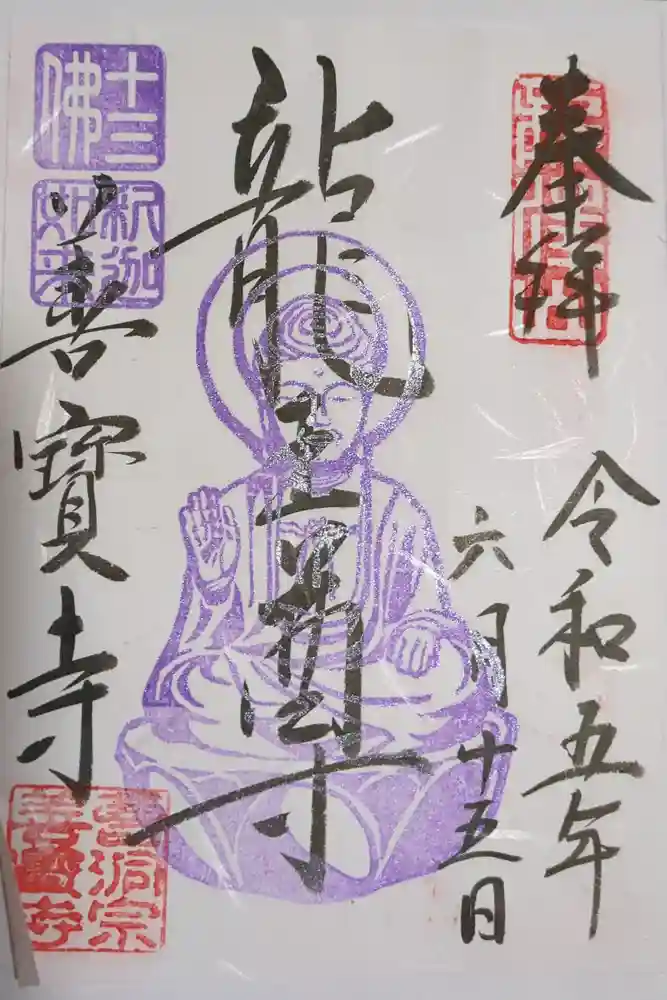 奉拝
令和五年
六月十五日
龍王尊
十三
佛
釈迦
如来
善寶寺
曹洞宗
善寳寺